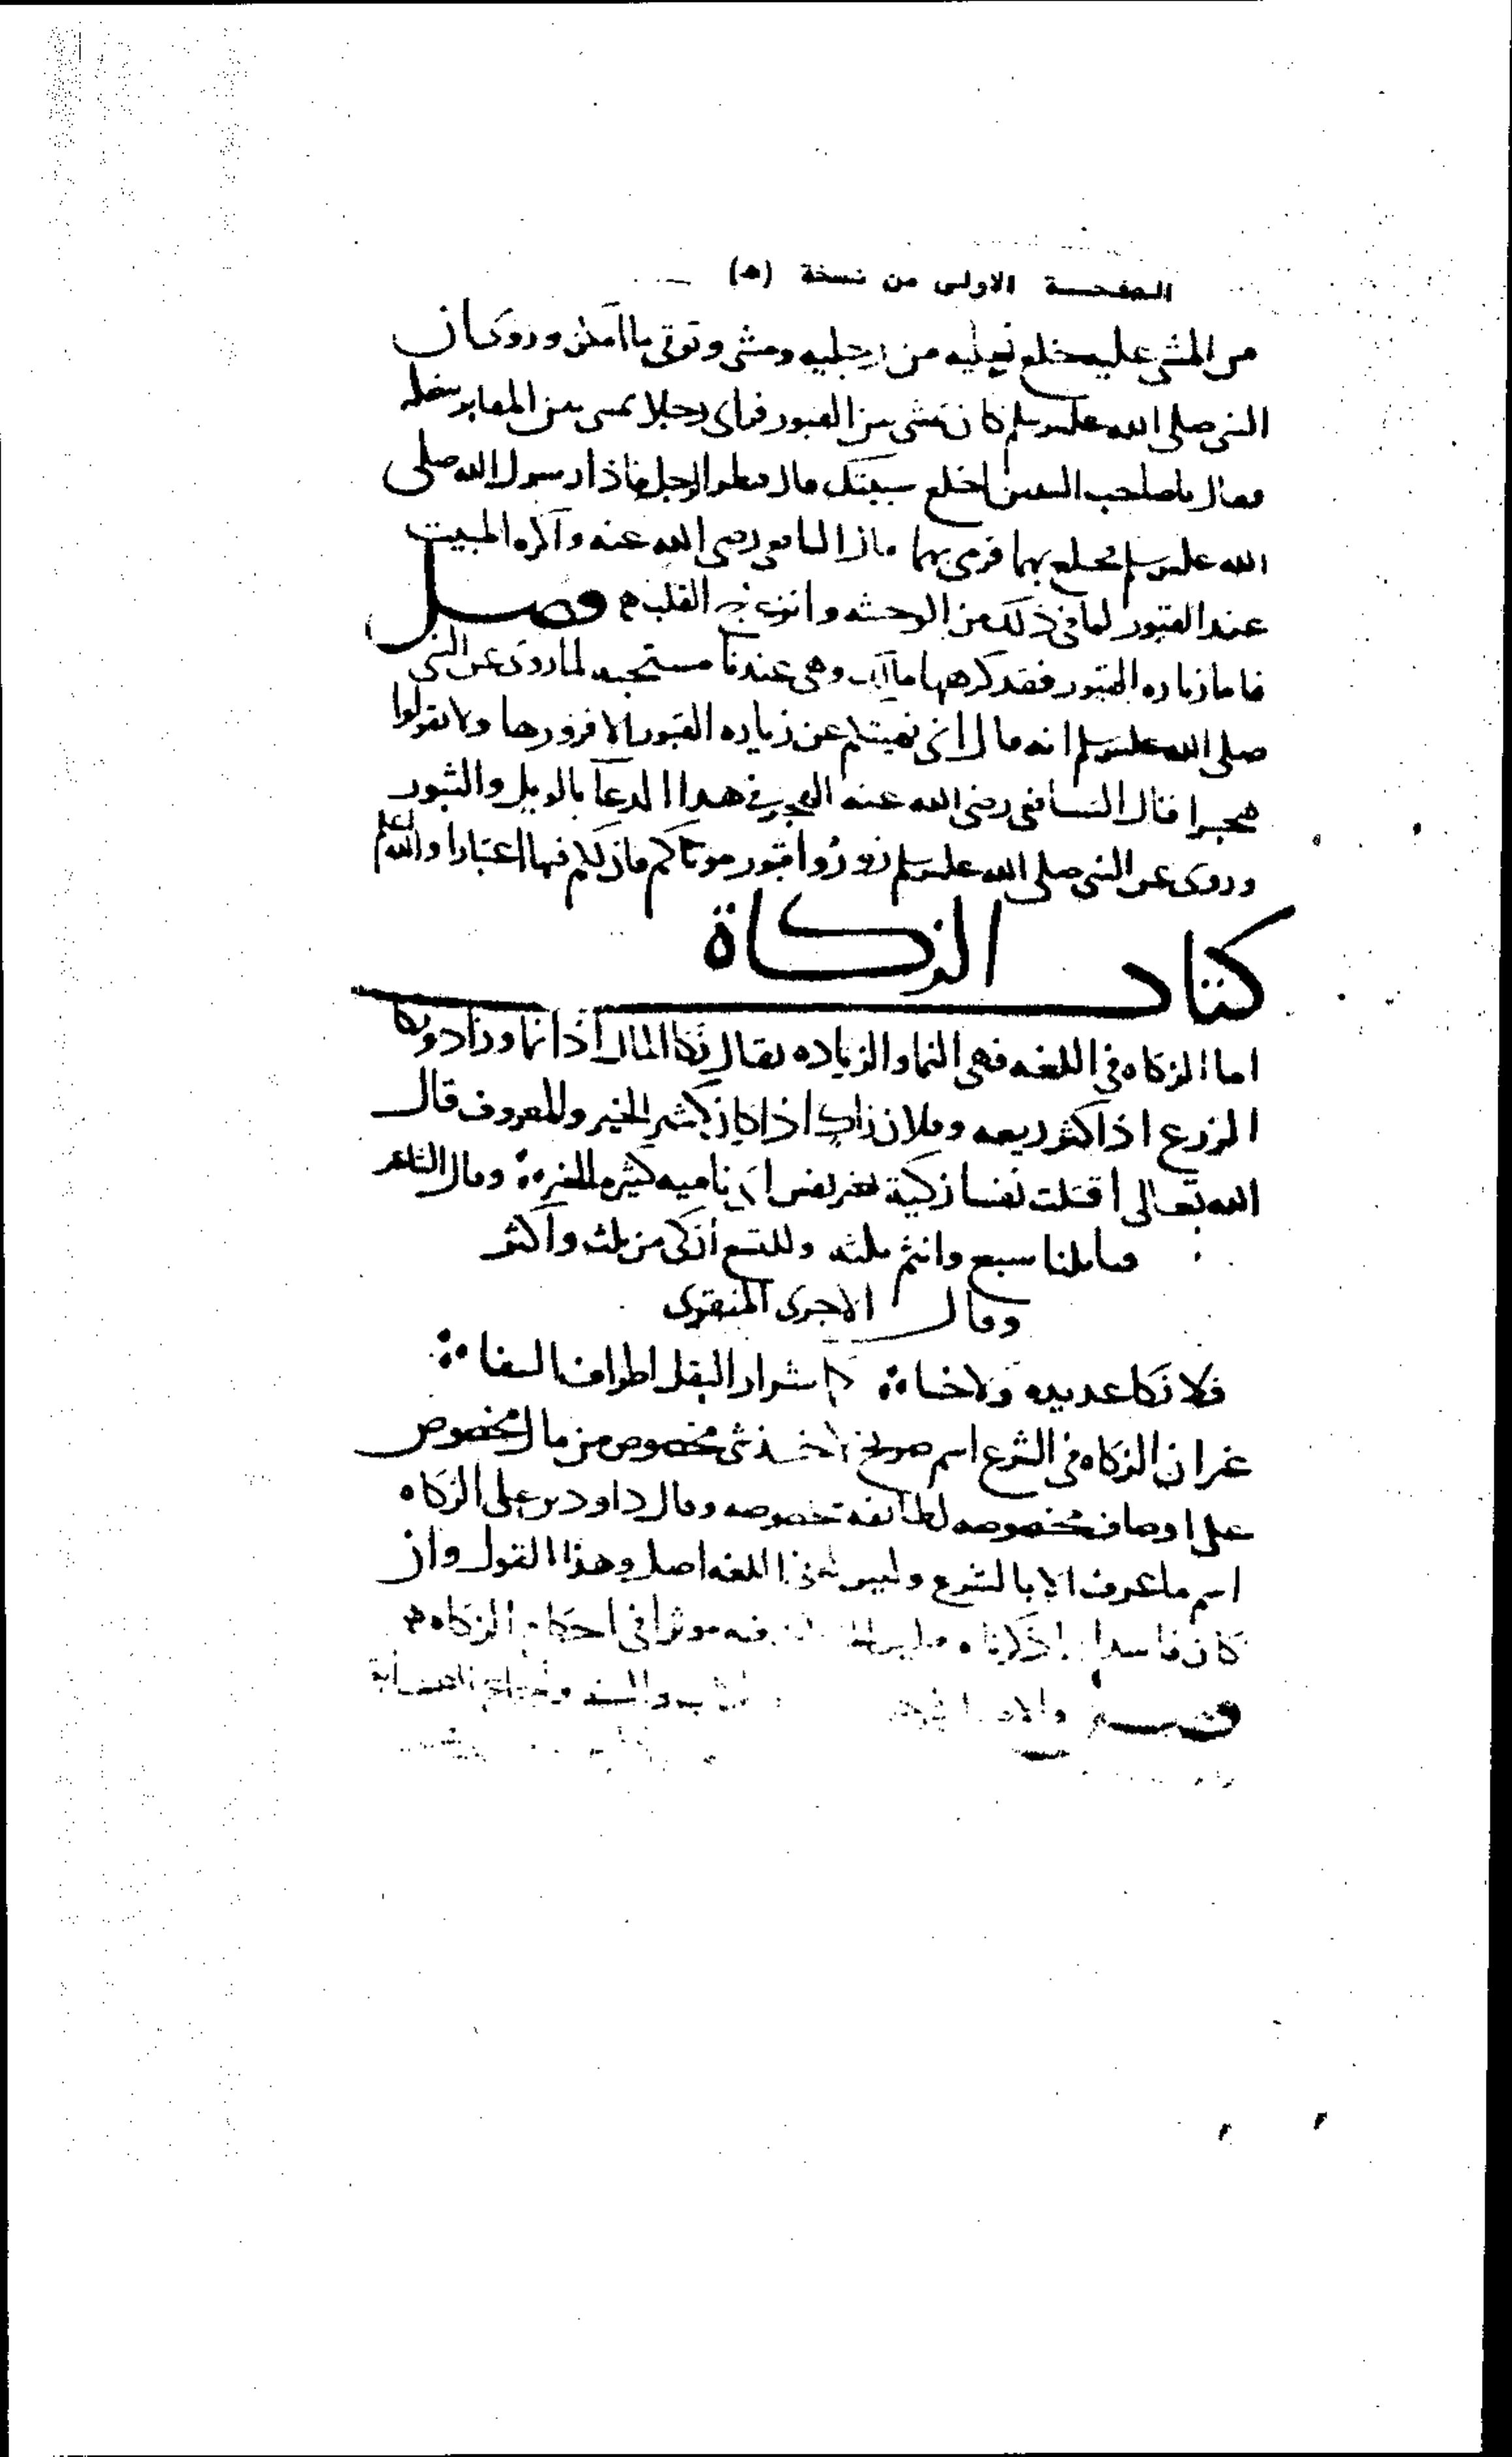 الصفحة الاولى من نسخة (هـ)
من المشي عليه خلع نعليه من رجليه ومشى وتوقى ما امكن وروى ان
النبي صلى الله عليه وسلم كان يمشي بين القبور فراى رجلا يمشي بين المقابر بنعليه
فقال يا صاحب السبتين اخلع سبتيك قال فنظر الرجل فاذا رسول الله صلى
الله عليه وسلم فخلع بهما فرمى بهما قال الشافعي رضى الله عنه واكره المبيت
عند القبور لما في ذلك من الوحشه وانزعاج القلب ه فصل
فاما زياره القبور فقد كرهها مالك وهى عندنا مستحبه لما روى عن النبي
صلى الله عليه وسلم انه قال انى نهيتكم عن زياره القبور الا فزورها ولا تقولوا
هجرا قال الشافعى رضى الله عنه الهجر في هذا الدعا بالويل والثبور
وروى عن النبي صلى الله عليه وسلم زوروا قبور موتاكم فان لكم فيها اعتبارا والله اعلم
كتاب الزكاة
اما الزكاه في اللغه فهى النما والزياده يقال زكا المال اذا نما وزاد وزكا
الزرع اذا كثر ريعه وفلان زاك اذا كان كثير الخير والمعروف قال
الله تعالى اقتلت نفسا زكية بغير نفس اى ناميه كثيره الخير وقال الشاعر
قبايلنا سبع وانتم ثلثه وللسبع ازكى من ثلث واكثر
وقال الاجرى المنقرى
فلا زكا عديده ولا خسا كما شرار البقل اطراف السفا
غير ان الزكاه في الشرع اسم صريح لاخذ شى مخصوص من مال مخصوص
على اوصاف مخصوصه لطائفه مخصوصه وقال داود بن على الزكاه
اسم ما عرف الا بالشرع وليس له في اللغه اصل وهذا القول وان
كان فاسدا بما ذكرناه فليس الخلاف فيه موثرا في احكام الزكاه ه
فصل والاصل في الكتاب والسنه واجماع الصحابة